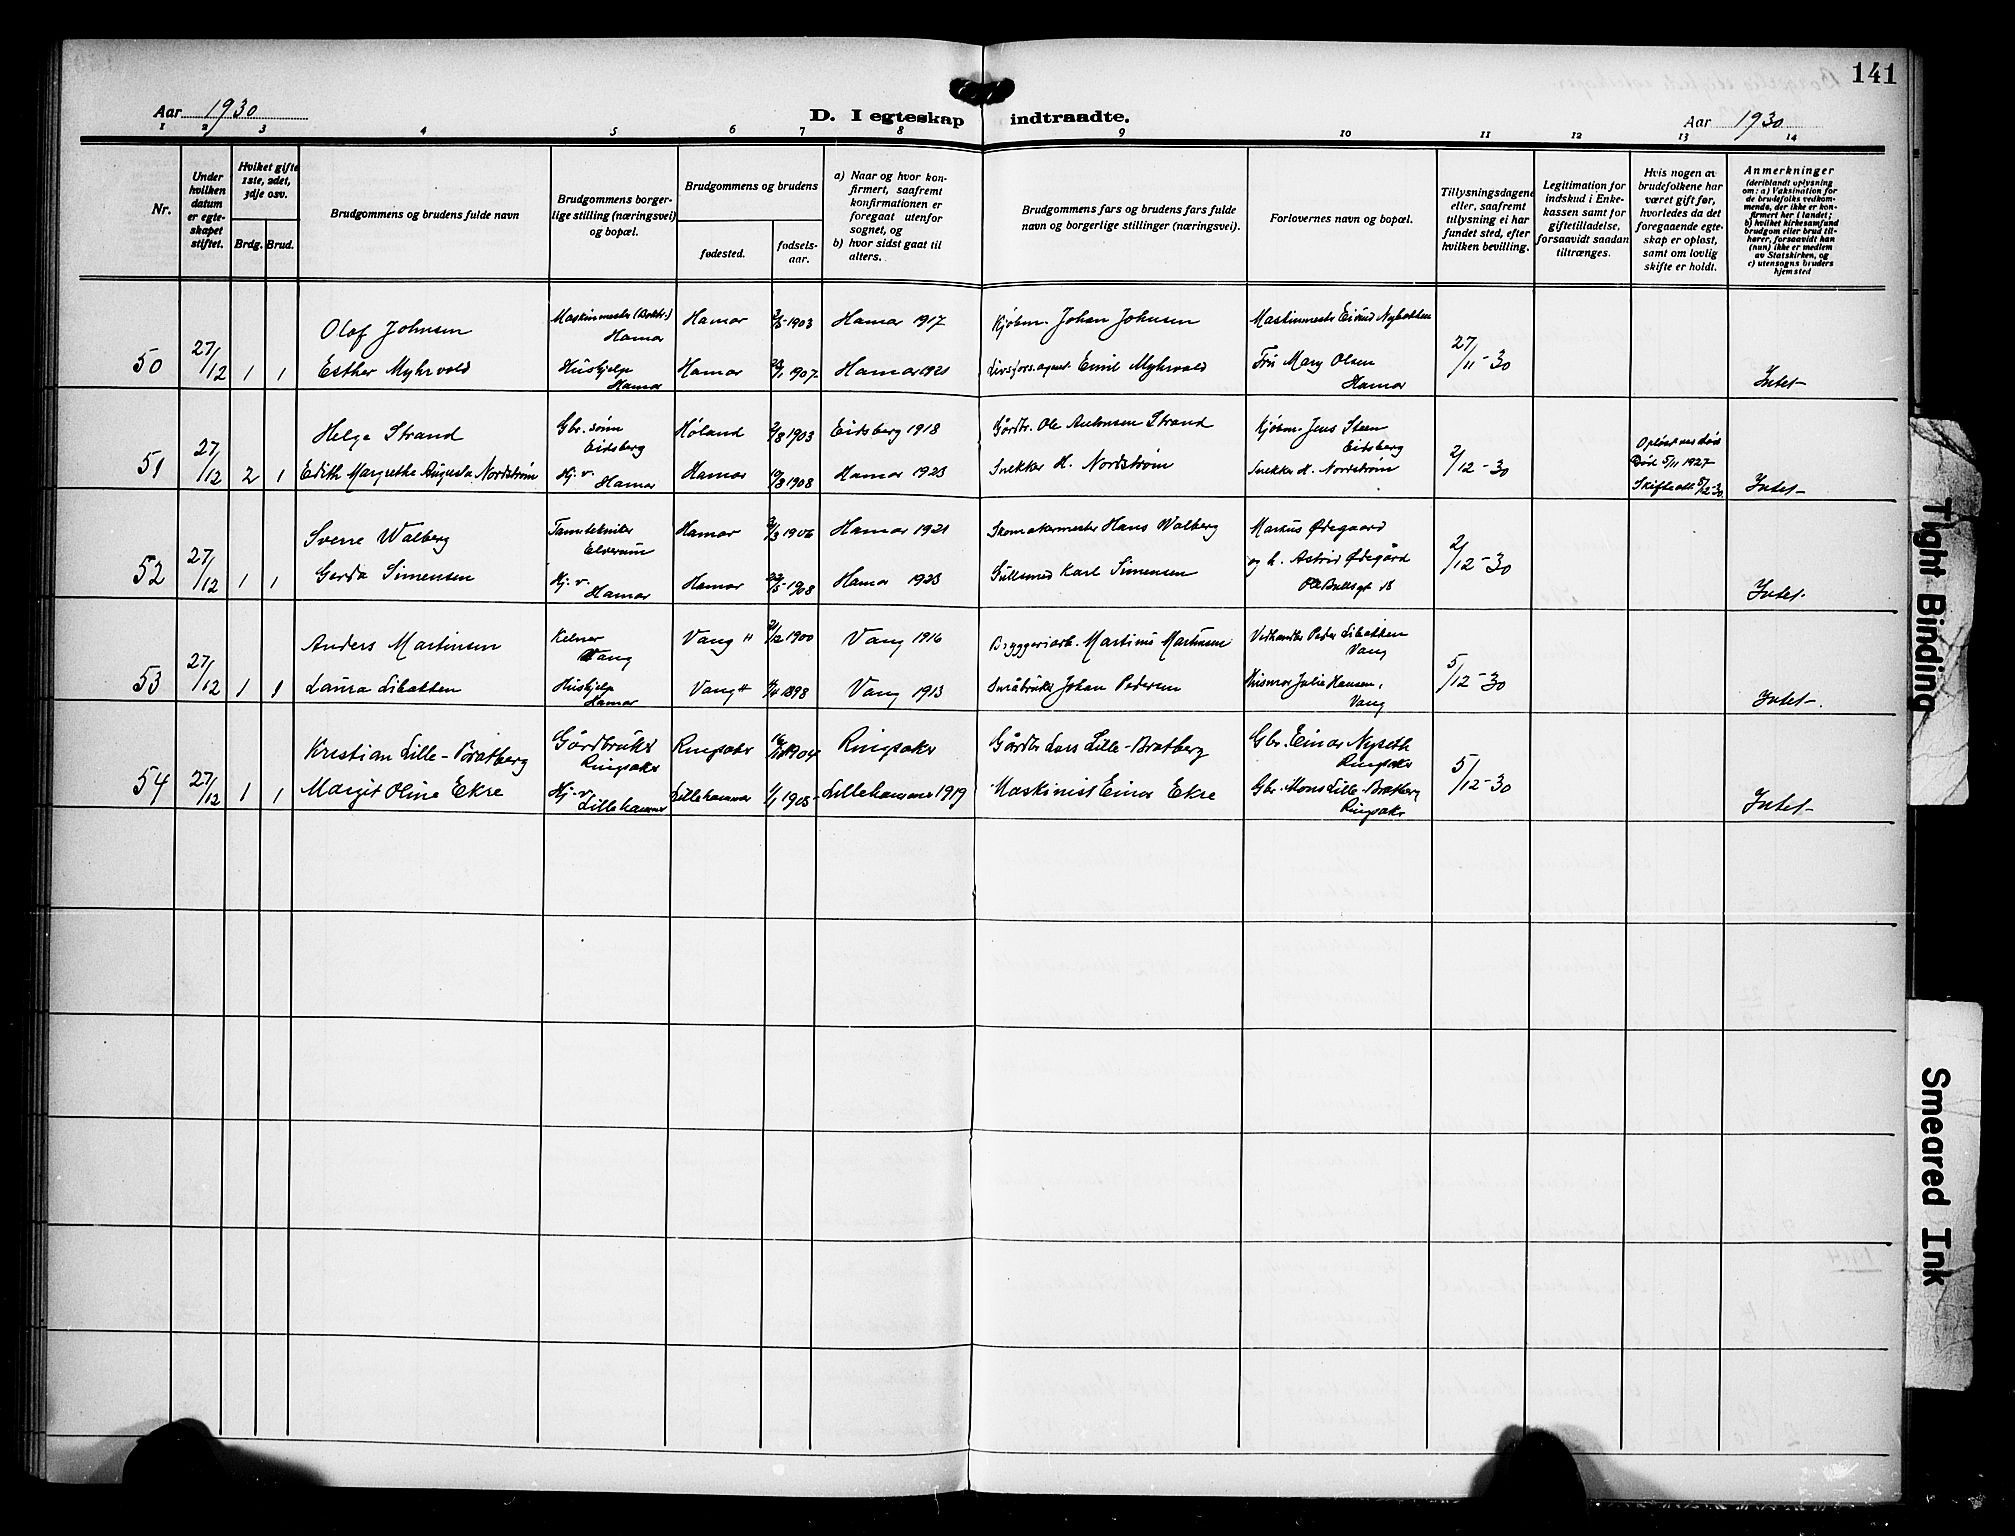 141
Aar 1930
D. I egteskap indtraadte.
Aar 1930
1 2 3 4 5 6 7 8 9 10 11 12 13 14
Nr.
Under hvilken datum er egteskapet stiftet.
Hvilket gifte 1ste, 2det, 3dje osv.
Brdg. Brud.
Brudgommens og brudens fulde navn
Brudgommens borgerlige stilling (næringsvei) og bopæl.
Brudgommens og brudens
fødested.
fødselsaar.
a) Naar og hvor konfirmert, saafremt konfirmationen er foregaat utenfor sognet, og
b) hvor sidst gaat til alters.
Brudgommens fars og brudens fars fulde navn og borgerlige stillinger (næringsvei).
Forlovernes navn og bopæl.
Tillysningsdagene eller, saafremt tillysning ei har fundet sted, efter hvilken bevilling.
Legitimation for indskud i Enkekassen samt for giftetilladelse, forsaavidt saadan tiltrænges.
Hvis nogen av brudefolkene har været gift før, hvorledes da det foregaaende egteskap er opløst, samt om lovlig skifte er holdt.
Anmerkninger
(deriblandt oplysning om: a) Vaksination for de brudefolks vedkommende, der ikke er konfirmert her i landet; b) hvilket kirkesamfund brudgom eller brud tilhører, forsaavidt han (hun) ikke er medlem av Statskirken, og c) utensogns bruders hjemsted
Olaf Johnsen Hamar Hamar 1903 Hamar 1917 Kjøbm. Johan Johnsen
50 27/12 1 1 Esther Myhrvold Hushjelp Hamar Hamar 1907 Hamar 1921 Emil Myhrvold Fru Mary Olsen Hamar 27/11-30 Intet-
Helge Strand Gbr. sønn Eidsberg Høland 1903 Eidsberg 1918 Gårdbr. Ole Strand Kjøbm. Jens Steen Eidsberg
51 27/12 2 1 Edith Margrethe Augusta Nordstrøm Hj. v. Hamar Hamar 1908 Hamar 1923 Snekker H. Nordstrøm Snekker H. Nordstrøm 2/12-30 Død 5/11 1927 Intet-
Sverre Walberg Elverum Hamar 1906 Hamar 1921 Skomakermester Hans Walberg Markus Ødegaard
52 27/12 1 1 Gerda Simensen Hj. v. Hamar Hamar 1908 Hamar 1923 Gullsmed Karl Simensen og h. Astrid Ødegård Ole Bullsgt 18 2/12-30 Intet.
Anders Martinsen Kelner Vang Vang H 1900 Vang 1916 Bryggeriarb. Martinus Martinsen Peder Libakken Vang
53 27/12 1 1 Laura Libakken Hushjelp Hamar Vang H 1898 Vang 1913 Småbruker Johan Pedersen Julie Hansen, Vang 5/12-30 Intet-.
Kristian Lille-Bratberg Gårdbruker Ringsaker Ringsaker 1904 Ringsaker Gårdbr Lars Lille-Bratberg Gbr. Einar Nyseth Ringsaker
54 27/12 1 1 Margit Oline Ekre Hj. v. Lillehammer Lillehammer 1905 Lillehammer 1919 Maskinist Einar Ekre Gbr. Mons Lille-Bratberg Ringsaker 5/12-30 Intet-
Tight Binding
Smeared Ink